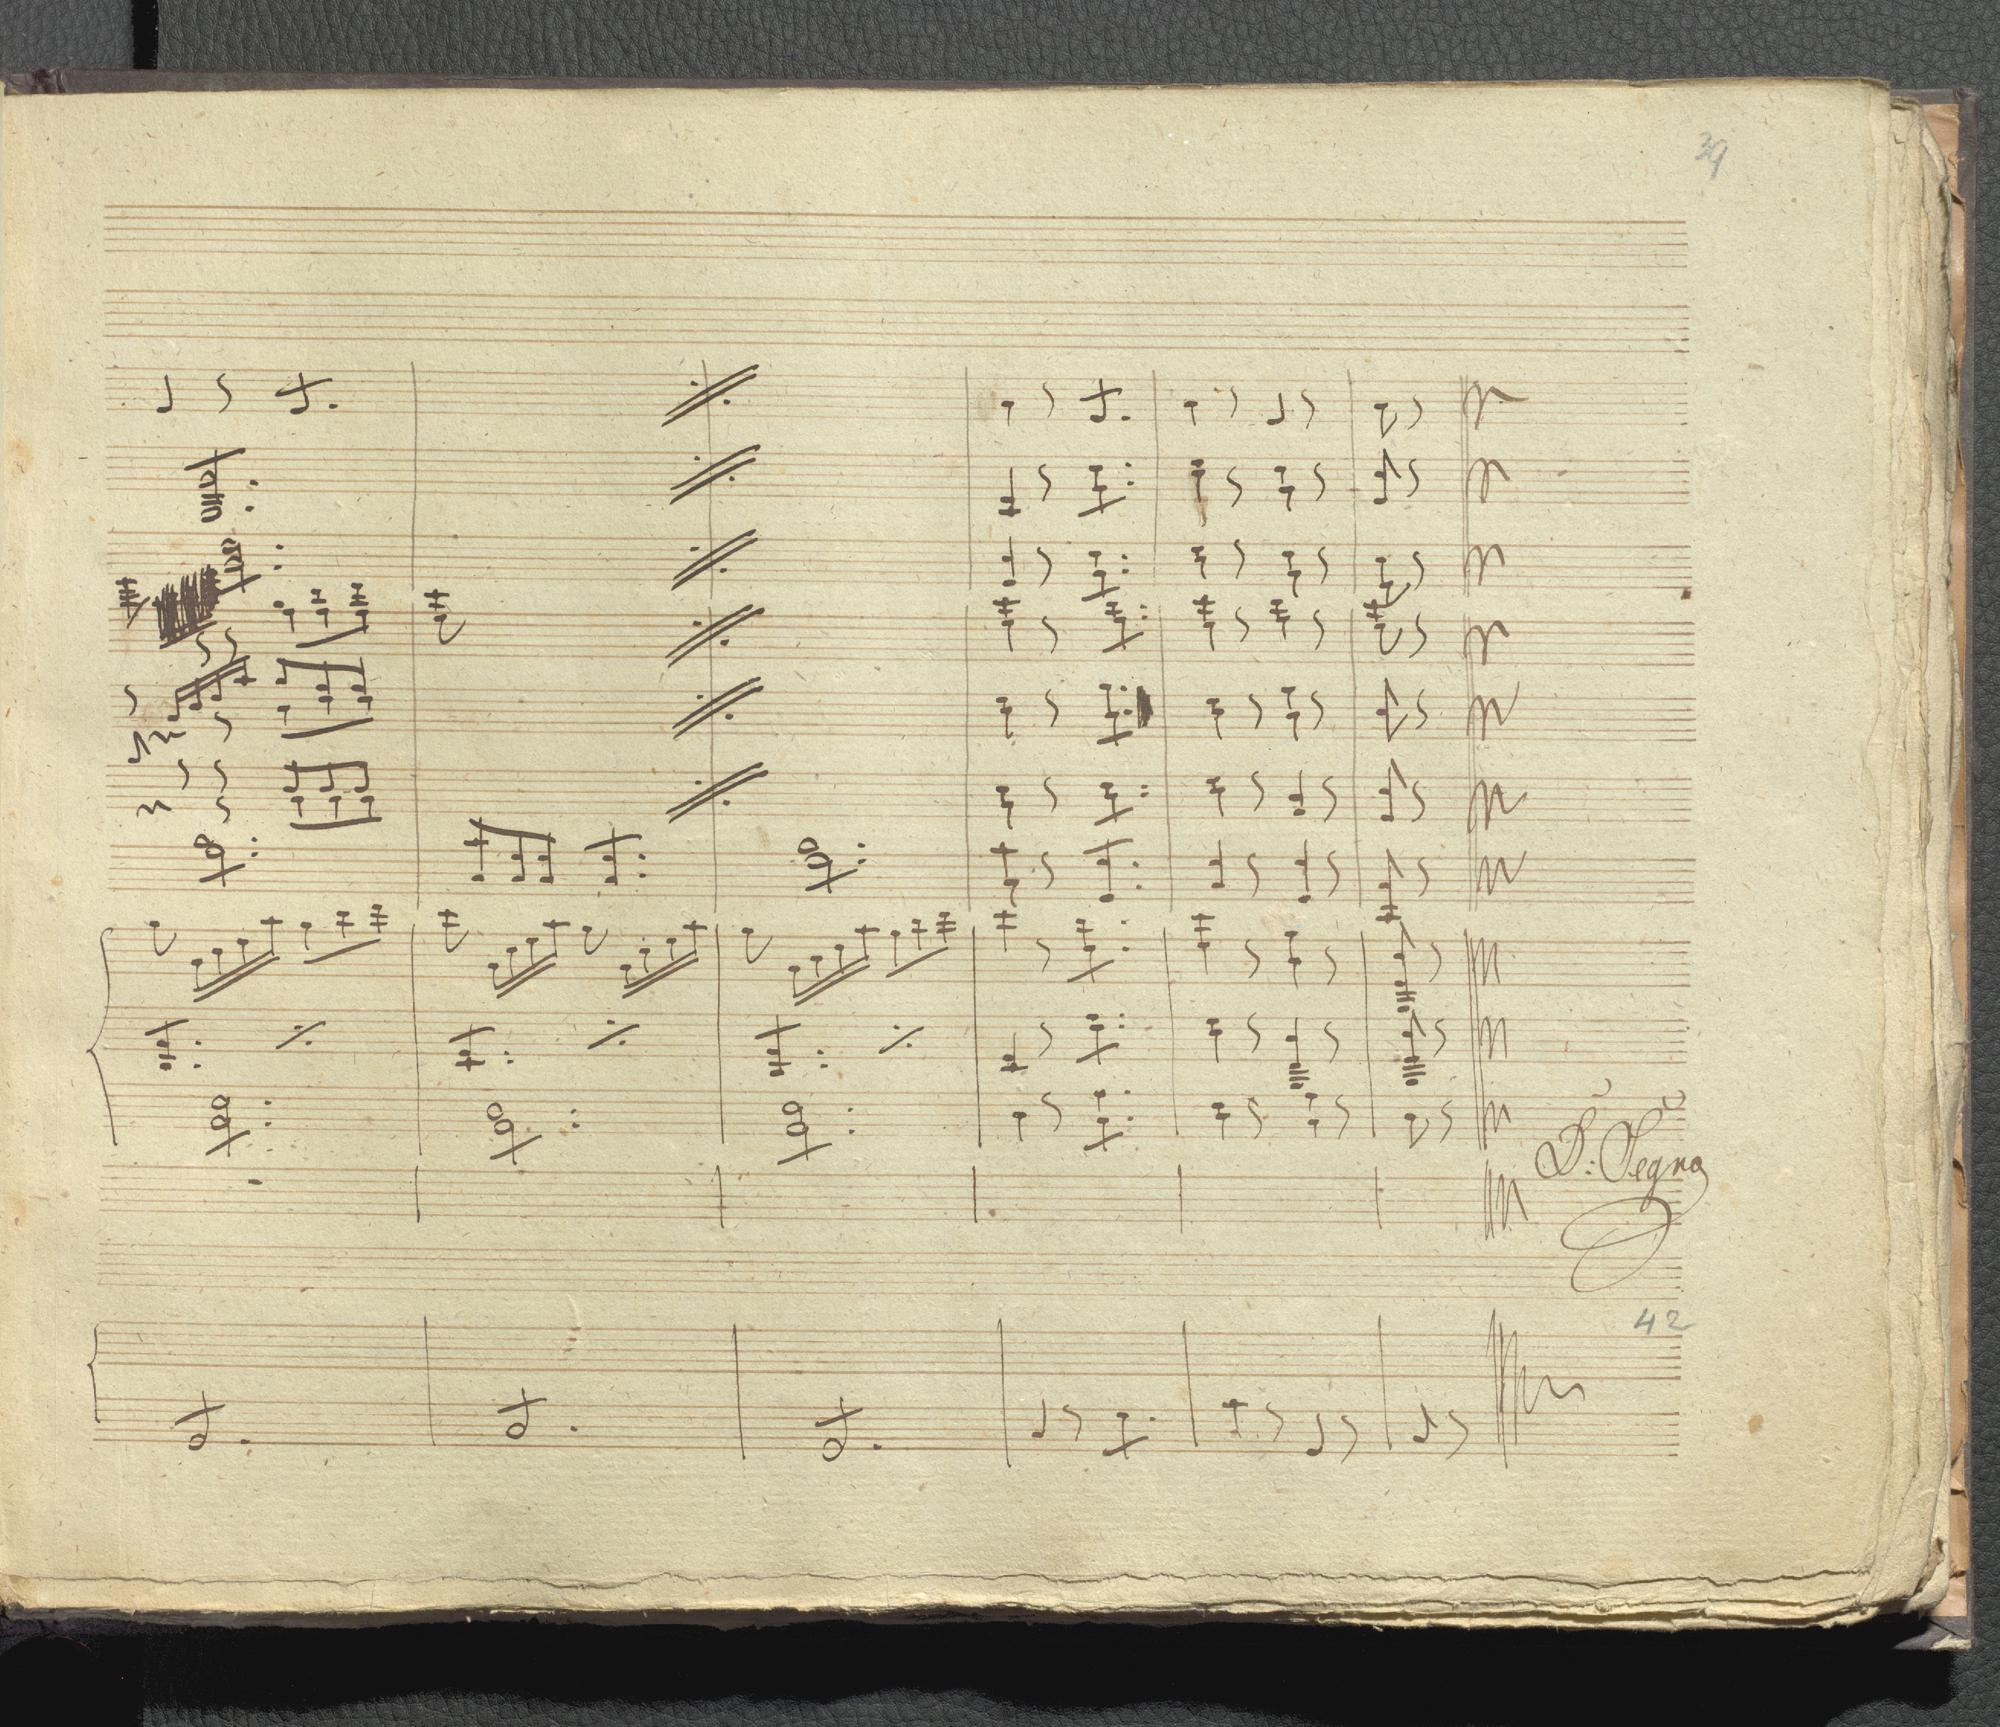 39
D: Segno
42